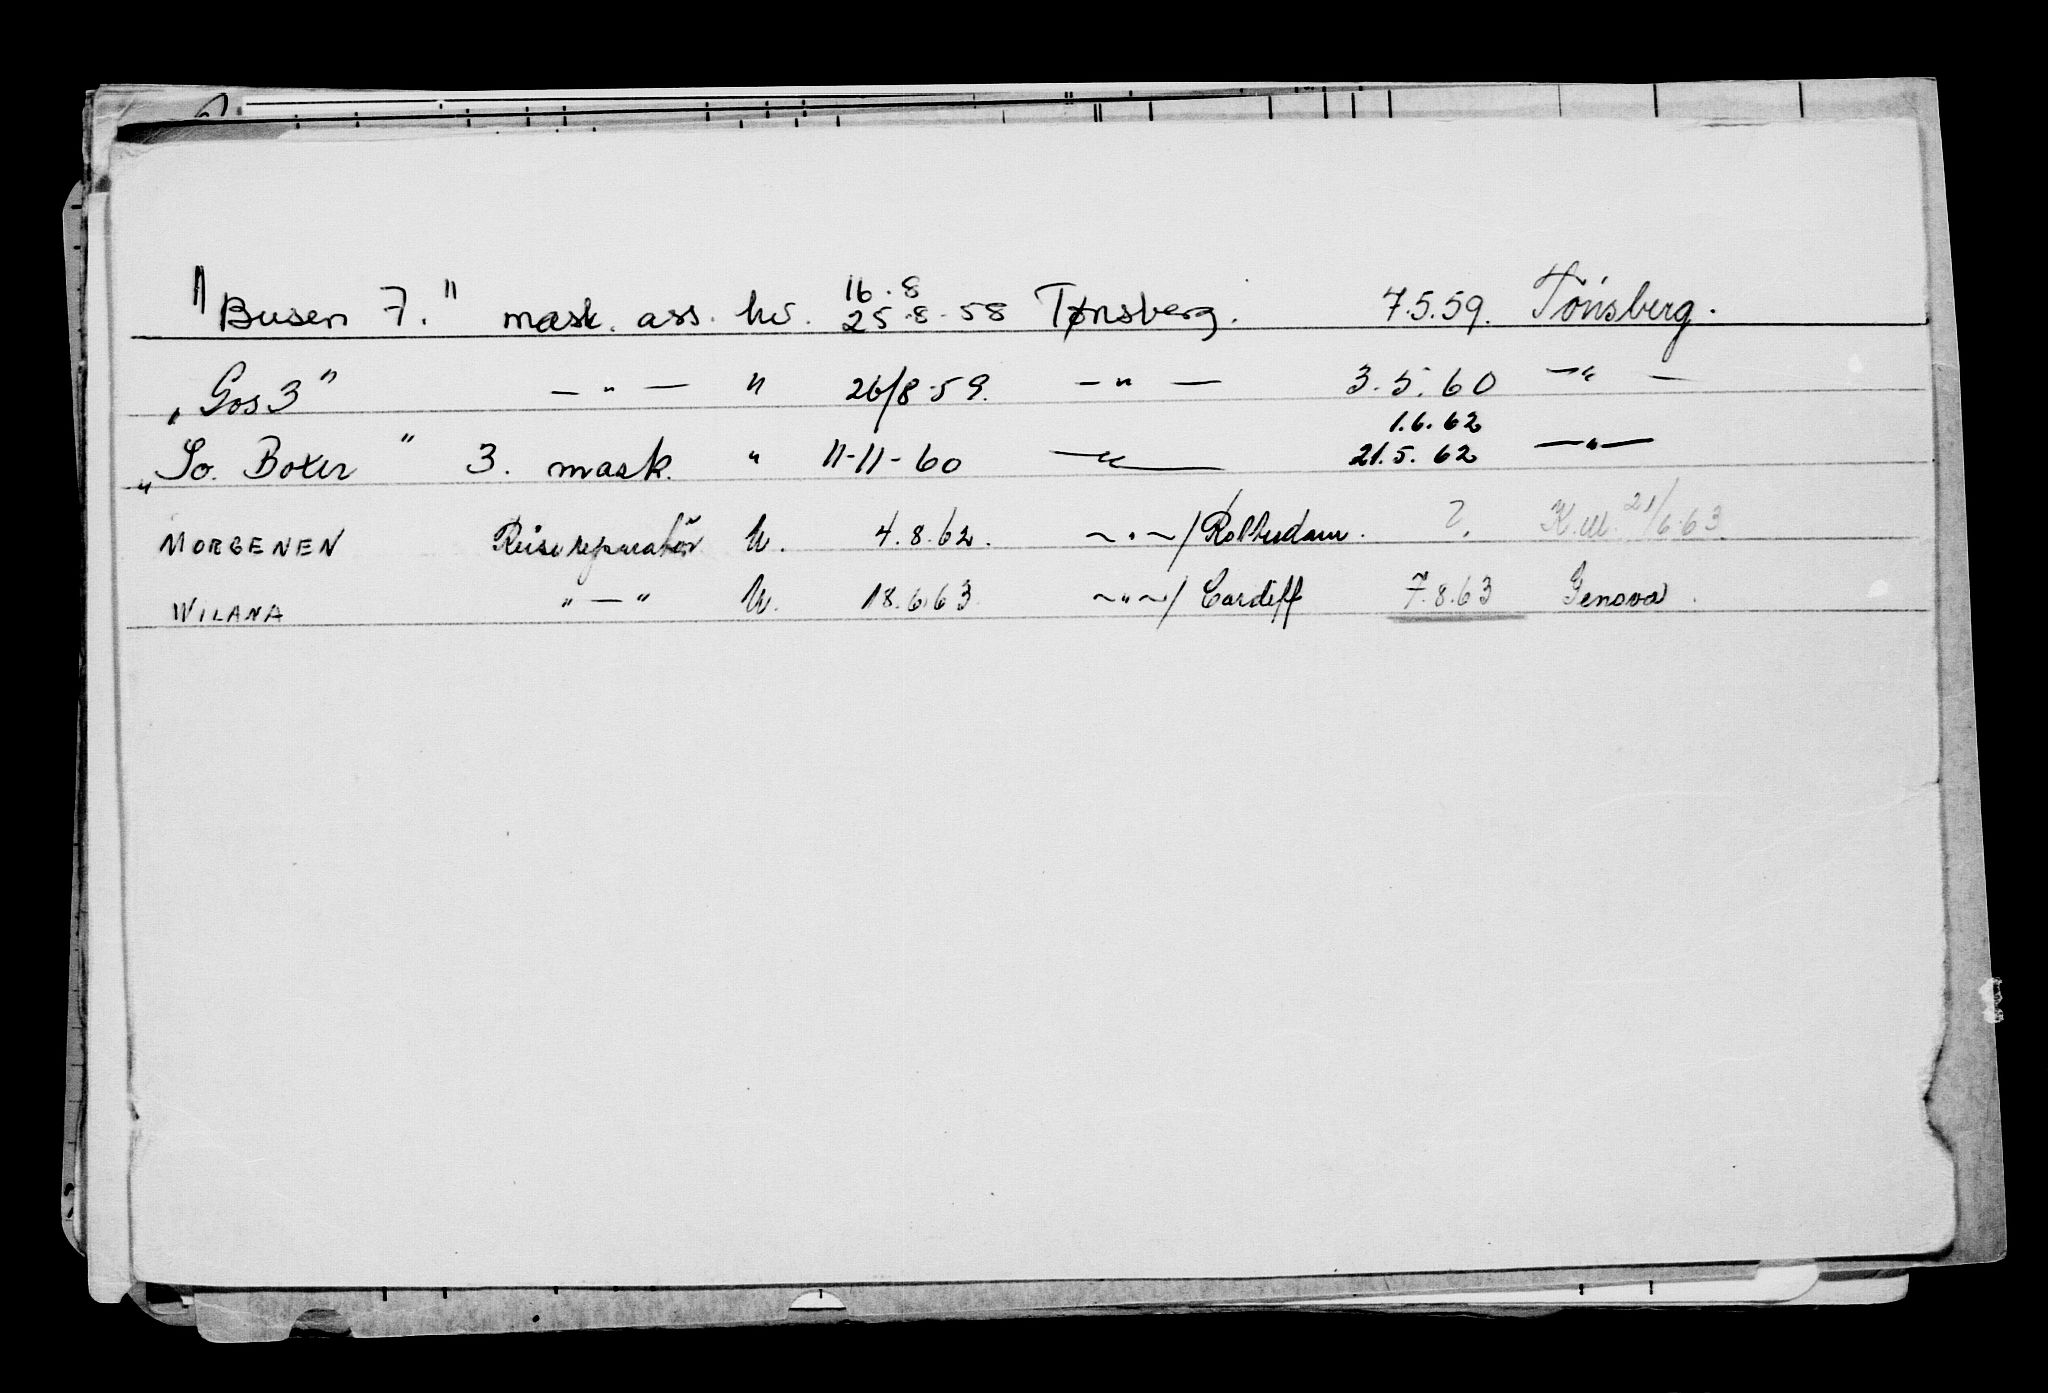 16.8
"Busen 7." mask. ass. hv. 25.8.58 Tønsberg. 7.5.59. Tönsberg.
"Gos 3" — " — " 26/8-59. — " — 3.5.60 — " —
1.6.62
"So. Boxer" 3. mask. " 11-11-60 — " — 21.5.62 — " —
MORGENEN Reisereparatör U. 4.8.62. ~ " ~ / Rotterdam. ?. 21/6.63
WILANA " — " U. 18.6.63 ~ " ~ / Cardiff 7.8.63 Genova.